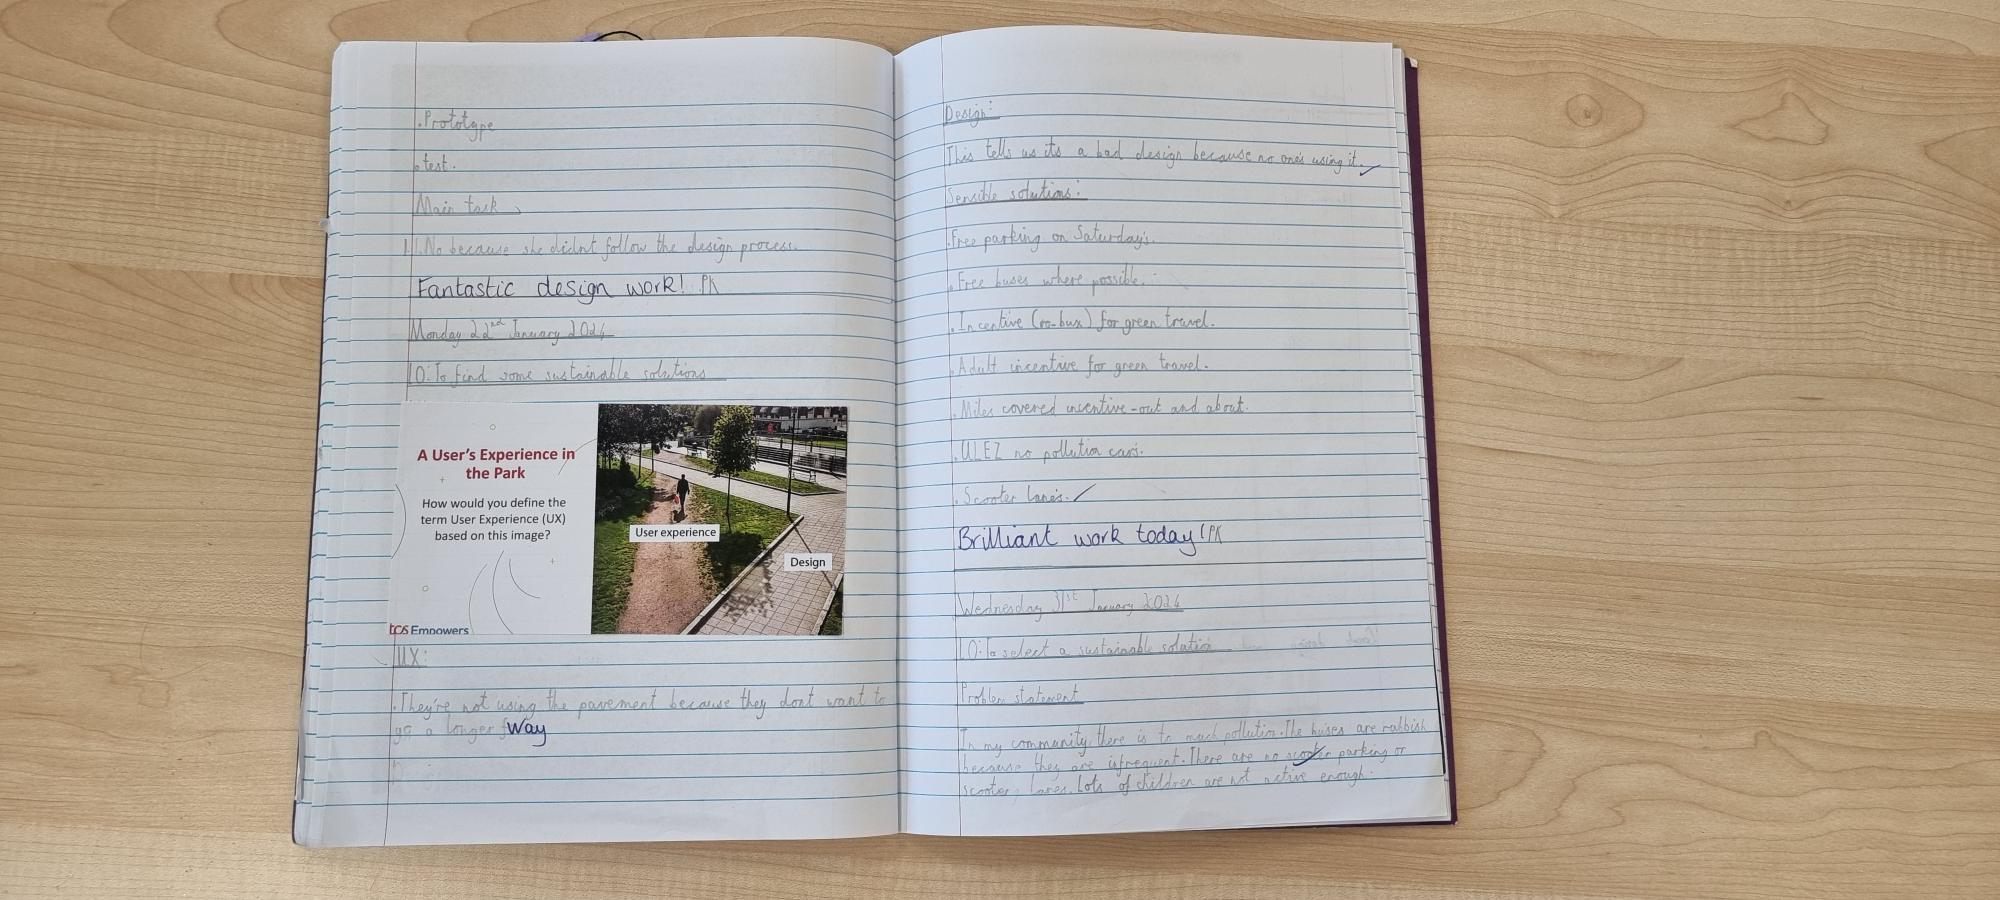 .Prototype
.test.
Main task
1.No because she didnt follow the design process.
Fantastic design work! PK
Monday 22nd January 2024
LO: To find some sustainable solutions
A User's Experience in
the Park
How would you define the
term User Experience (UX)
based on this image?
User experience
Design
TCS Empowers
UX:
.They're not using the pavement because they dont want to
go a longer way
Design:
This tells us its a bad design because no one's using it.
Sensible solutions:
.Free parking on Saturday's.
.Free buses where possible.
.Incentive (ro-bux) for green travel.
.Adult incentive for green travel.
.Miles covered incentive-out and about.
.ULEZ no pollution cars.
.Scooter lanes.
Brilliant work today! PK
Wednesday 31st January 2024
LO: To select a sustainable solution
Problem statement
In my community there is to much pollution. The buses are rubbish
because they are infrequent. There are no scooter parking or
scooter lanes. Lots of children are not active enough.